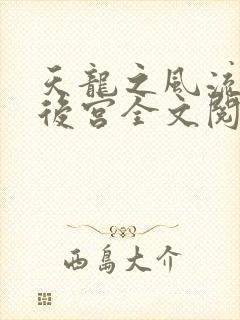 天龍之風流
後宮全文閱
西島大介